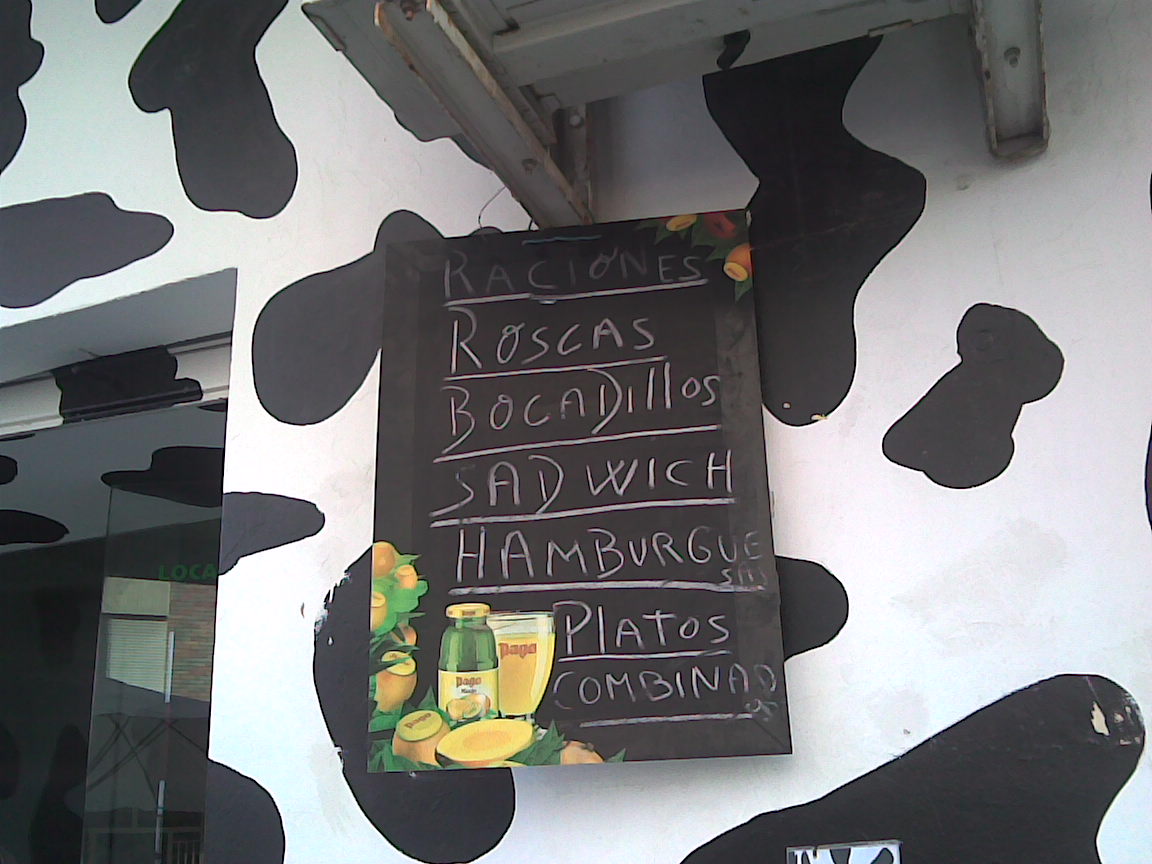 RACIONES
ROSCAS
BOCADillos
SADWICH
HAMBURGUE
SAS
PlATOS
COMBINAD
OS
Pago
Pago
LOCA